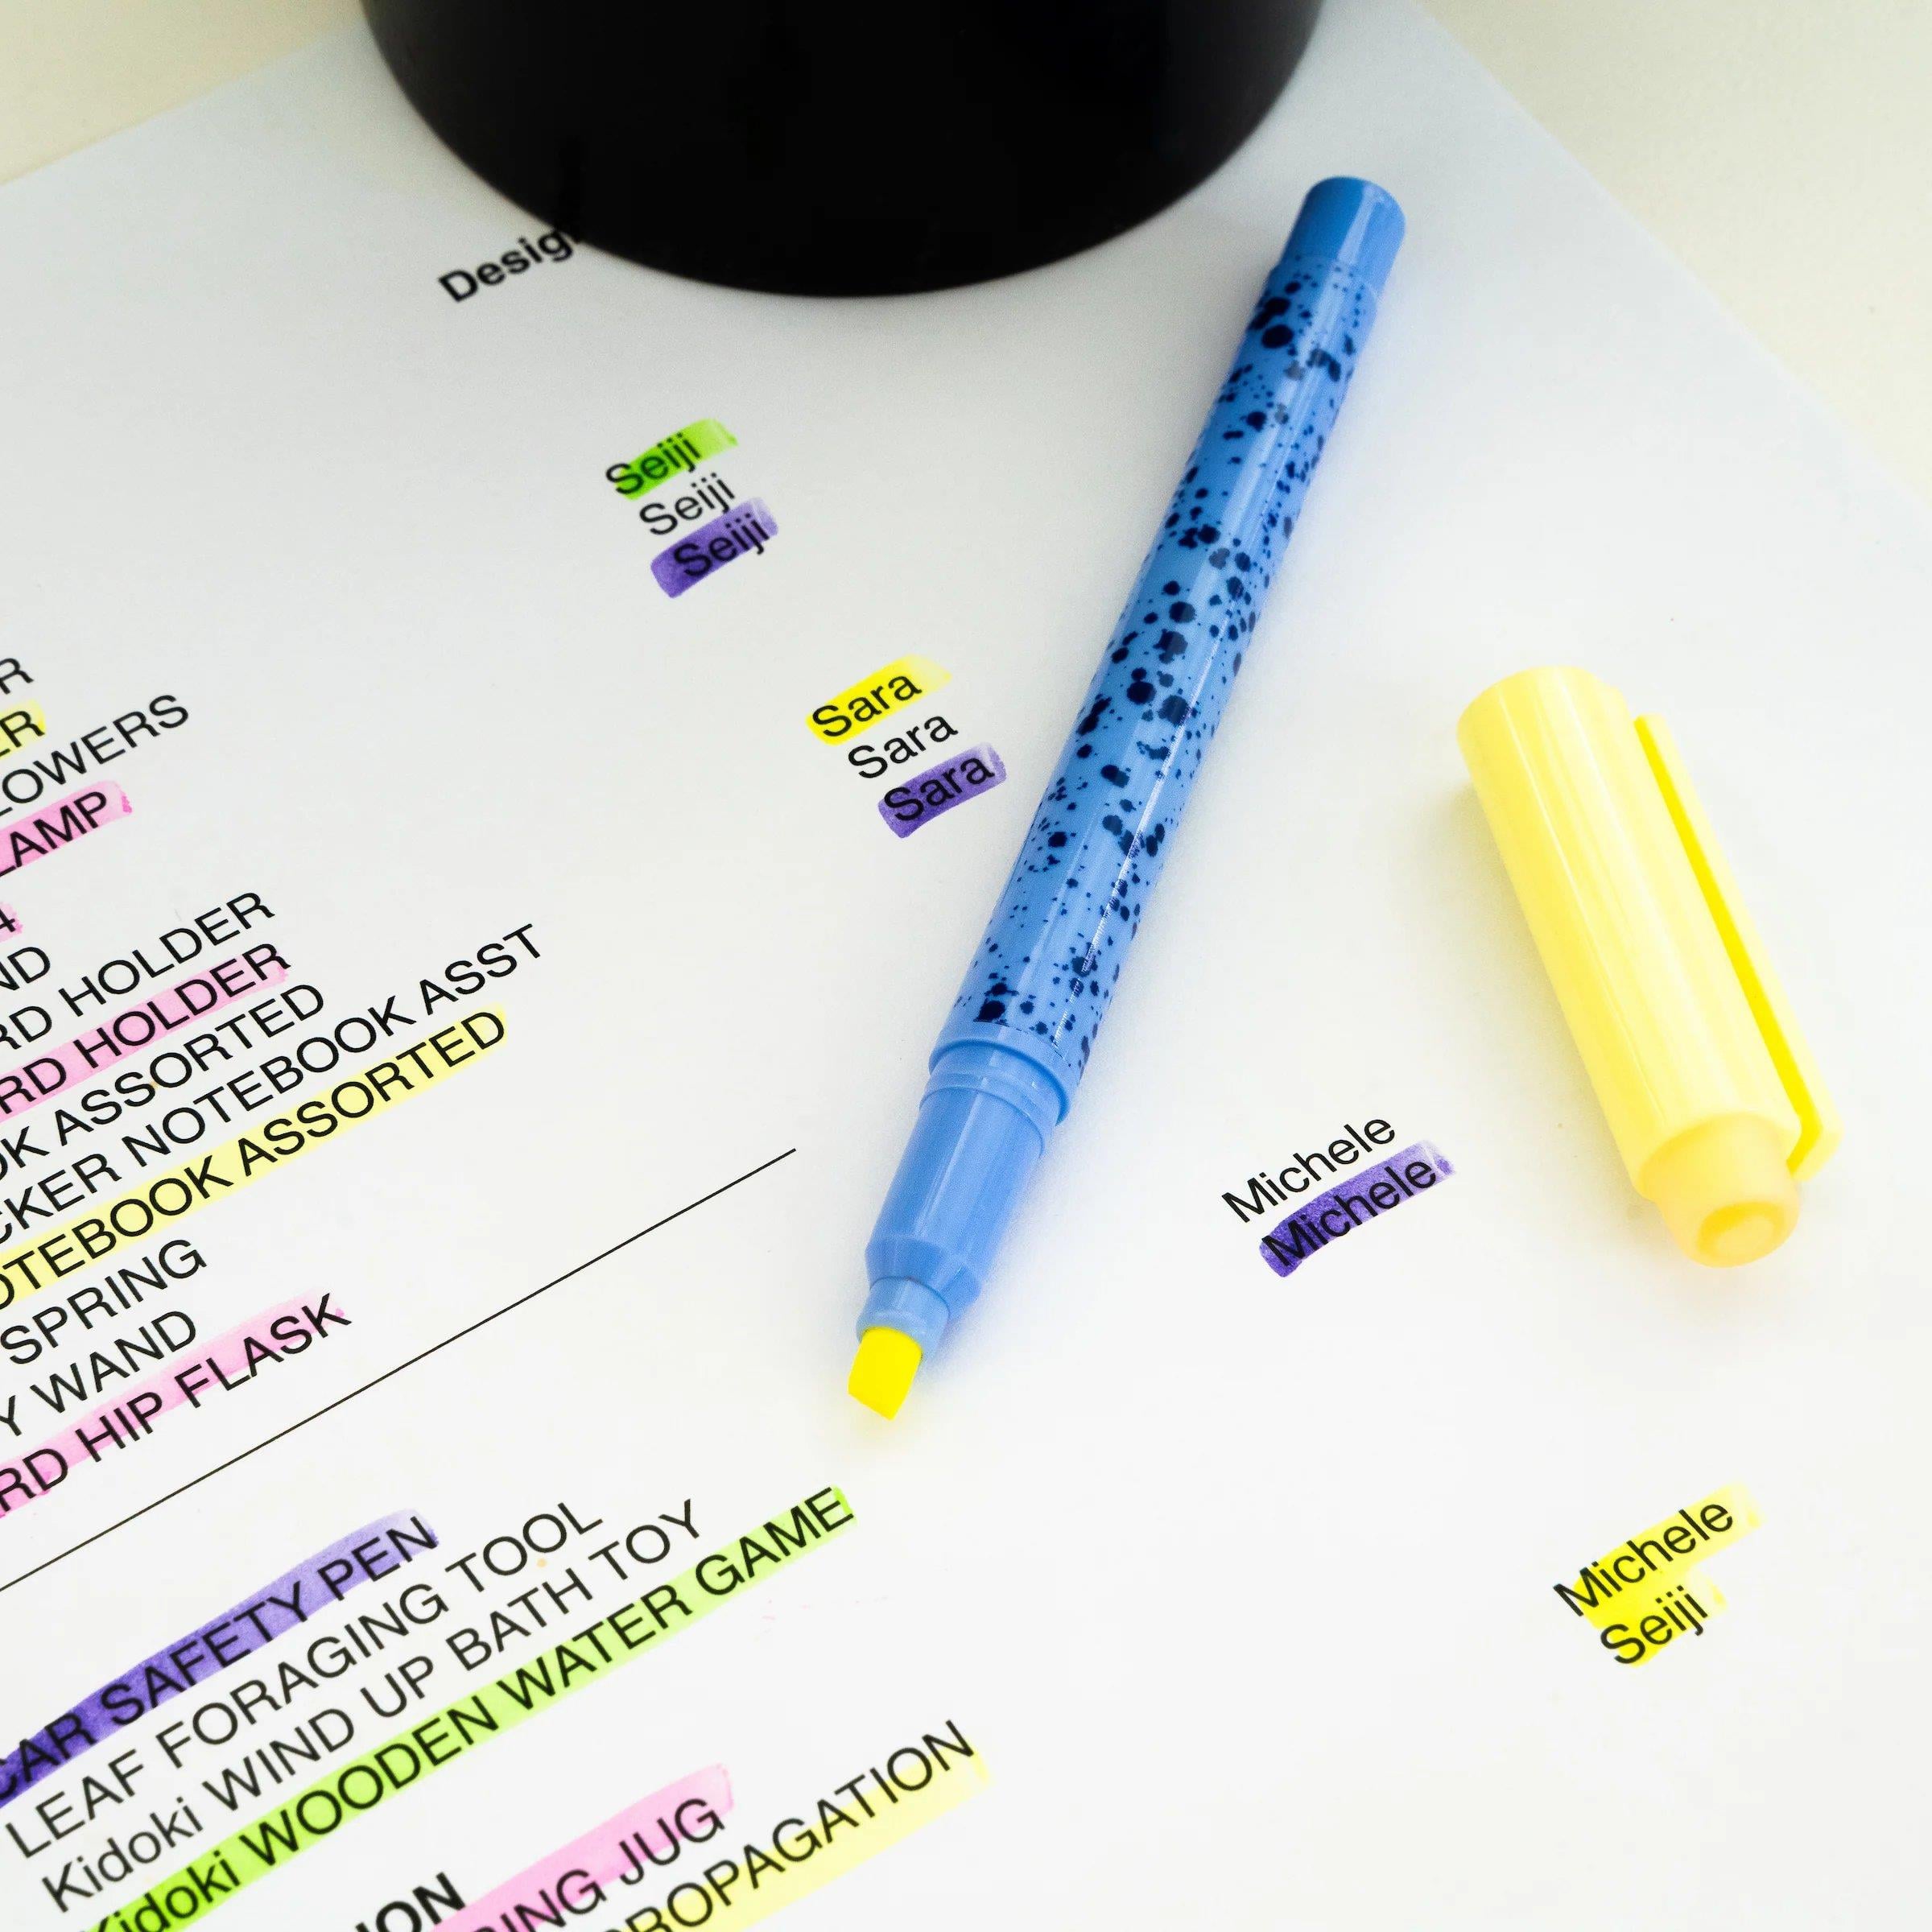 Desig
Seiji
Seiji
Seiji
Sara
Sara
Sara
R
ER
LOWERS
LAMP
4
ND
RD HOLDER
RD HOLDER
OK ASSORTED
CKER NOTEBOOK ASST
OTEBOOK ASSORTED
SPRING
Y WAND
RD HIP FLASK
Michele
Michele
Michele
Seiji
CAR SAFETY PEN
LEAF FORAGING TOOL
Kidoki WIND UP BATH TOY
Kidoki WOODEN WATER GAME
ION
RING JUG
PROPAGATION